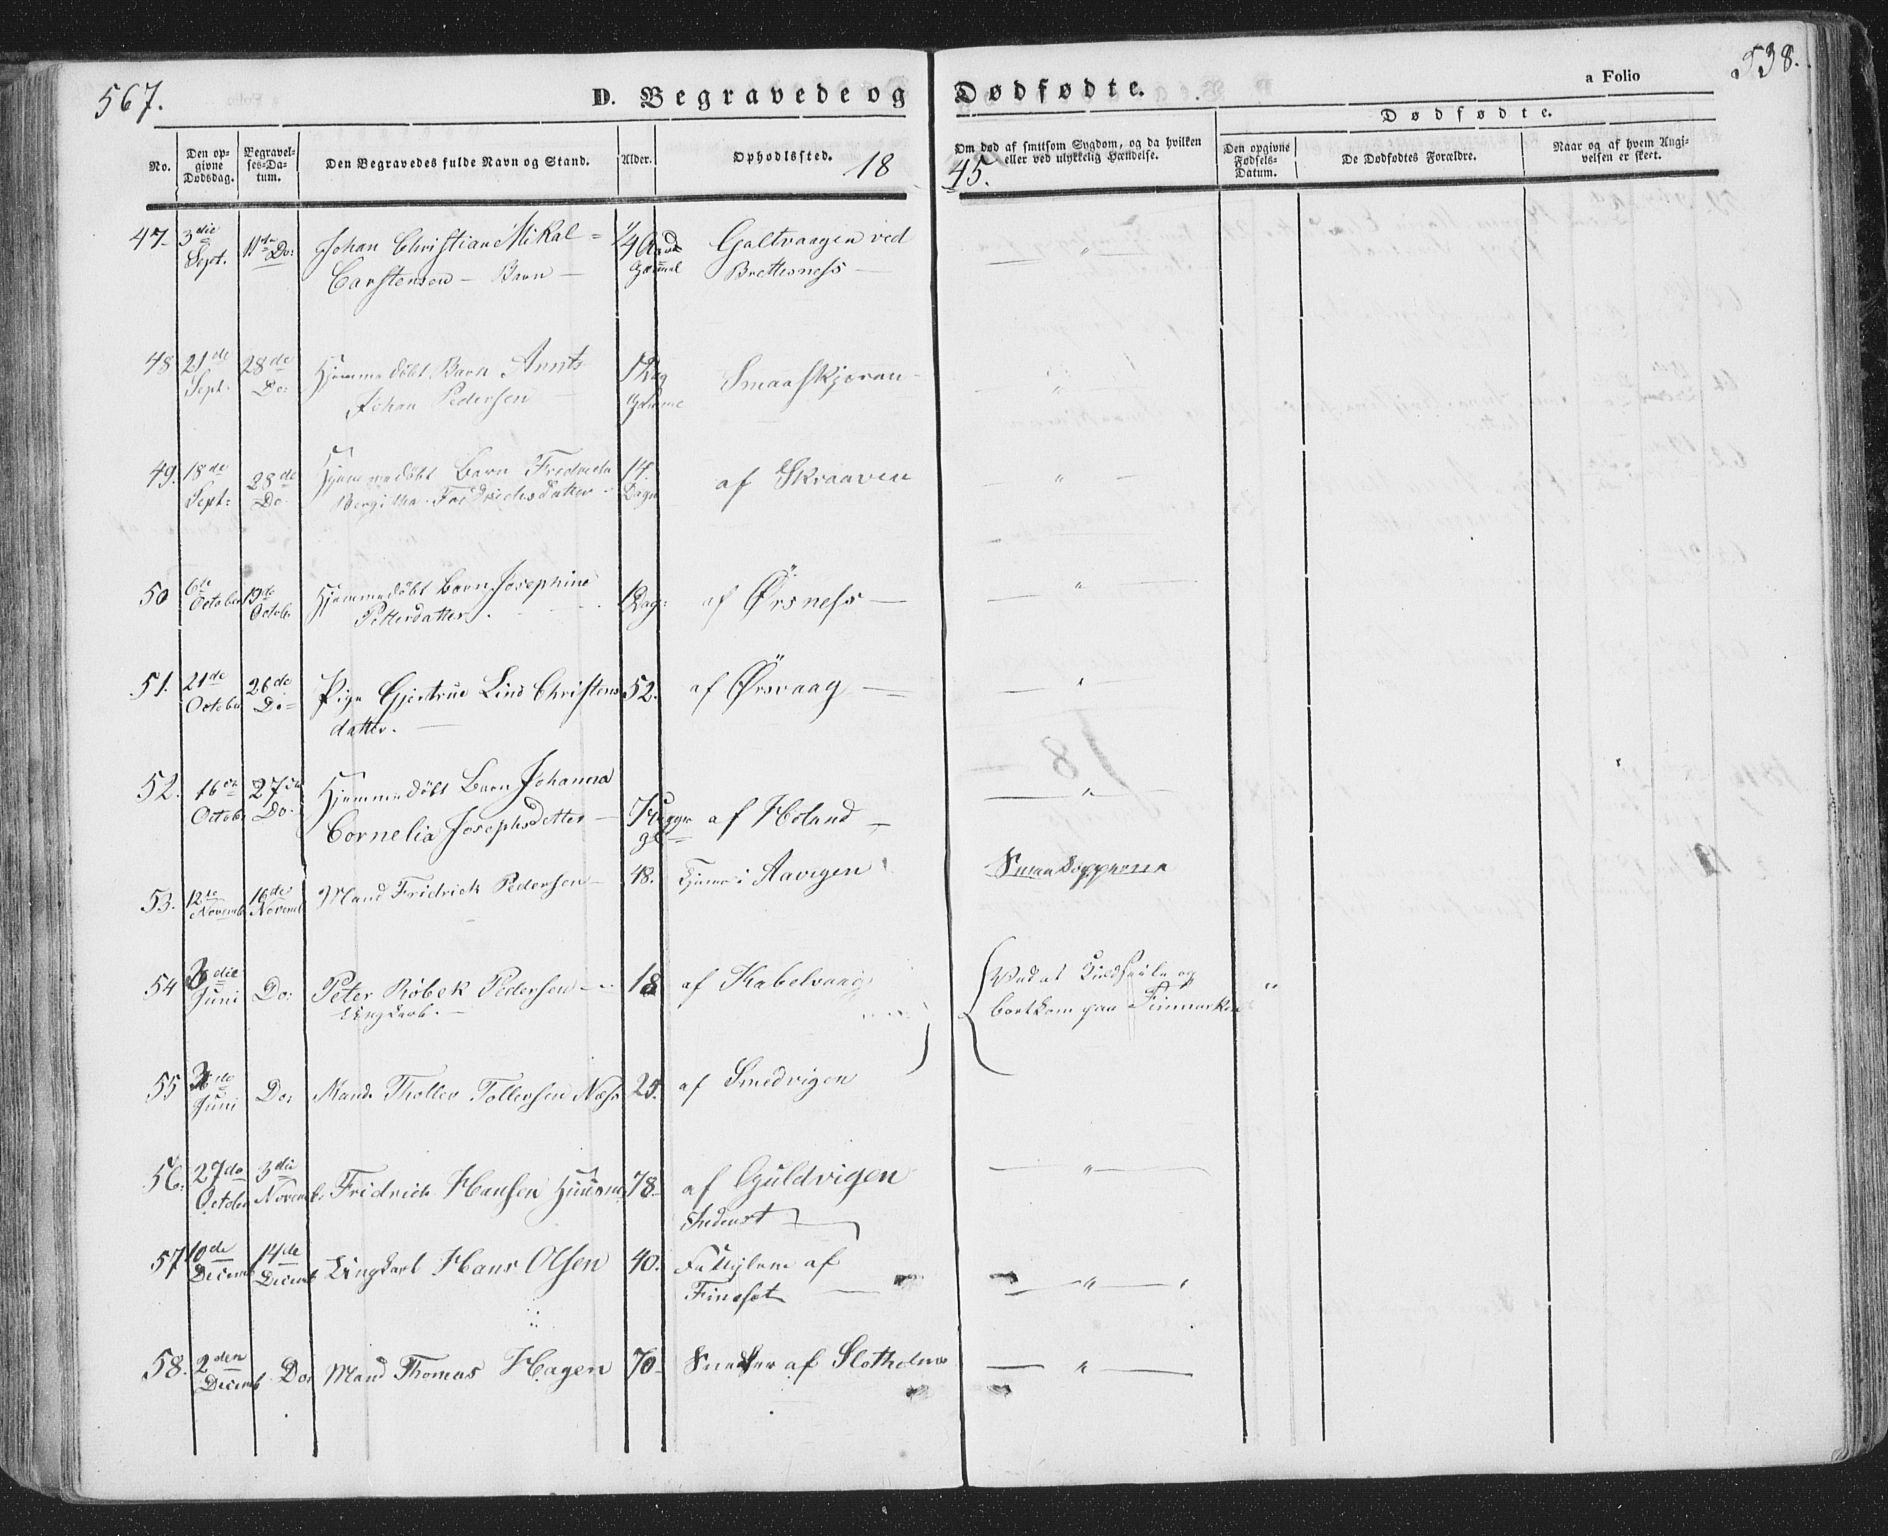 567.
D. Begravede og Dødfødte.
a Folio
538.
Dødfødte.
No.
Den opgivne Dødsdag.
Begravelses-Datum.
Den Begravedes fulde Navn og Stand.
Alder.
Opholdssted.
Om død af smitsom Sygdom, og da hvilken eller ved ulykkelig Hændelse.
Den opgivne Fødsels-Datum.
De Dødfødtes Forældre.
Naar og af hvem Angivelsen er skeet.
18
45.
47. 3die 11te Do: Johan Christian Mikal = 1/4 Galtvaagen ved
Sept. Carstensen - Barn - Gammel Brettesness -
48 21de 28de Hjemmedøbt Barn 1 Dag Smaaskjæran
Sept. Do: Johan Pedersen
49. 18de 28de Hjemmedøbt Barn 14 af Skraaven
Sept: Do Bergitha Fredrichsdatter Dage
50 6te 19de Hjemmedøbt Barn Josephine 1 Dag: af Ørsness -
October Octob: Petterdatter.
51. 21de 26de Pige Gjertrue Lind Christens 52. af Ørsvaag -
October Do= datter. -
52. 16de 27de Hjemmedøbt Barn Johanna
Octob: Do. Cornelia Josephsdatter - 7 af Holand -
53. 12te 16de Mand Fridrick Pedersen - 48. i Aavigen Smaakopperne
Novemb Novemb
54 3die Do: Peter Röbek Pedersen - 18 af Kabelvaag
Juni Ungkarl. - bortkom paa Finmarken
55 3de Do: Mand Tholler Tollersen Næss 25. af Smedvigen
Juni
56. 27de 3die Fridrich Hansen 78 af Guldvigen
October Novemb.
57 10de 14de Ungkarl Hans Olsen 40. Fattiglem af
Decemb Decemb Finesæt
58. 2den Do: Mand Thomas Hagen 70 Snedker af Slotholmen
Decemb